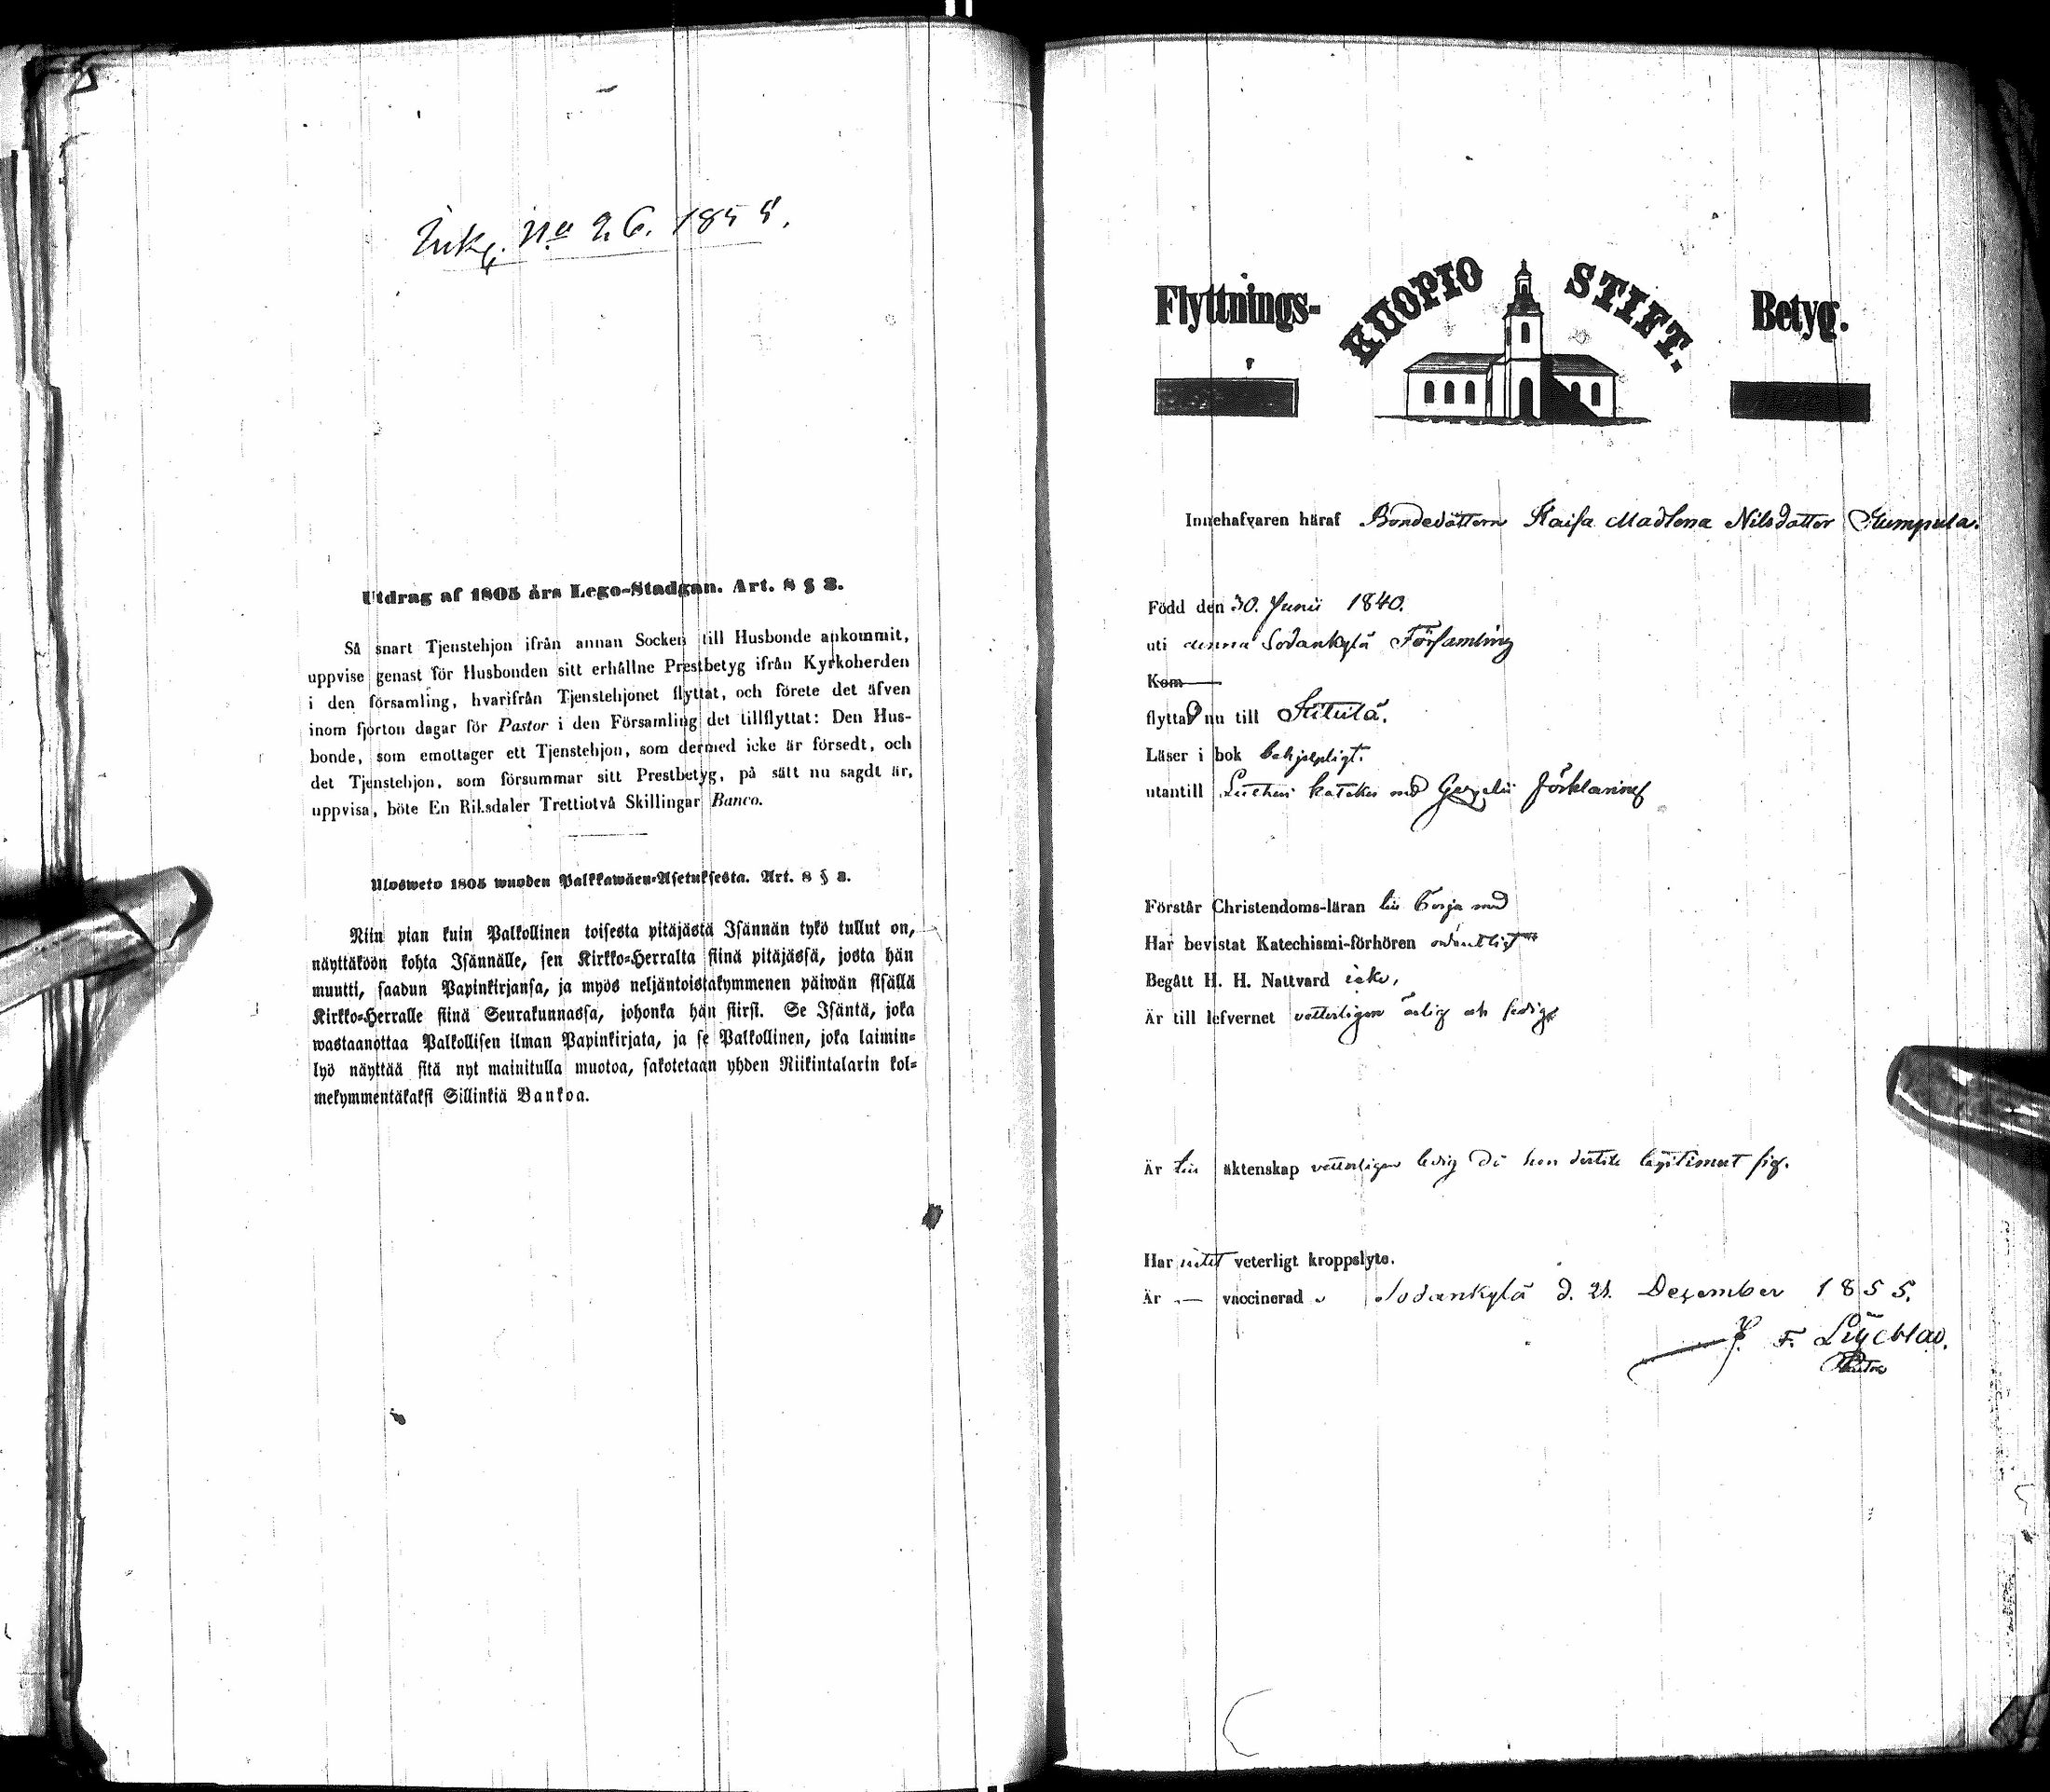 Ink. No 26. 1855.
Utdrag af 1805 års Lego-Stadgan. Art. 8 § 3.
Så snart Tjenstehjon ifrån annan Socken till Husbonde ankommit,
uppvise genast för Husbonden sitt erhållne Prestbetyg ifrån Kyrkoherden
i den församling, hvarifrån Tjenstehjonet flyttat, och förete det äfven
inom fjorton dagar för Pastor i den Församling det tillflyttat: Den Hus-
bonde, som emottager ett Tjenstehjon, som dermed icke är försedt, och
det Tjenstehjon, som försummar sitt Prestbetyg, på sätt nu sagdt är,
uppvisa, böte En Riksdaler Trettiotvå Skillingar Banco.
Ulosweto 1805 wuoden Palkkawäen-Asetuksesta. Art. 8 § 3.
Niin pian kuin Palkollinen toisesta pitäjästä Isännän tykö tullut on,
näyttäköön kohta Isännälle, sen Kirkko-Herralta siinä pitäjässä, josta hän
muutti, saadun Papinkirjansa, ja myös neljäntoistakymmenen päiwän sisällä
Kirkko-Herralle siinä Seurakunnassa, johonka hän siirsi. Se Isäntä, joka
wastaanottaa Palkollisen ilman Papinkirjata, ja se Palkollinen, joka laimin-
lyö näyttää sitä nyt mainitulla muotoa, sakotetaan yhden Riikintalarin kol-
mekymmentäkaksi Sillinkiä Bankoa.
Flyttnings- KUOPIO STIFT. Betyg.
Innehafvaren häraf Bondedottern Kaisa Madlena Nilsdotter Kumpula.
Född den 30. Junii 1840.
uti denna Sodankylä Församling
Kom
flyttar nu till Kittilä.
Läser i bok behjelpligt.
utantill Lutheri kateches med Gezelii förklaring
Förstår Christendoms-läran till börja med
Har bevistat Katechismi-förhören ordentligt
Begått H. H. Nattvard icke,
Är till lefvernet vetterligen ärlig och fredig
Är till äktenskap vetterligen ledig då hon dertill legitimerat sig.
Har intet veterligt kroppslyte.
Är — vaccinerad. Sodankylä d. 21. December 1855.
F. Lücblad.
Pastor